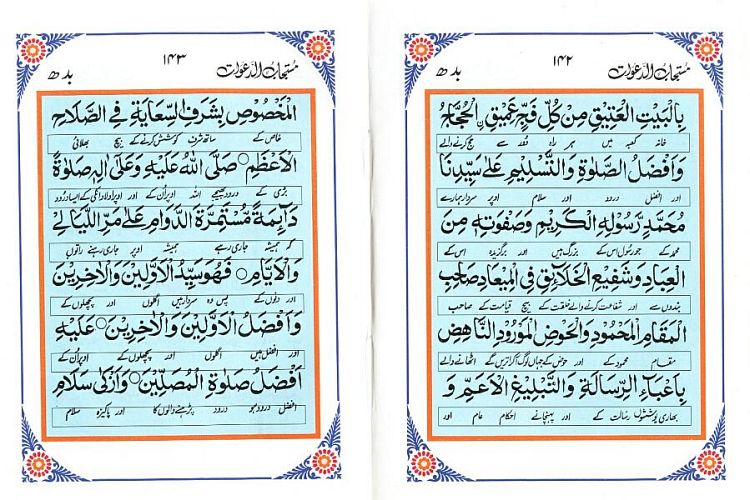 مستجاب الدعوات ۱۴۲ بدھ
بِالْبَيْتِ الْعَتِيْقِ مِنْ كُلِّ فَجٍّ عَمِيْقِ الْحُجَّاجُ
خانہ کعبہ میں ہر راہ سے حج کرنے والے
وَاَفْضَلُ الصَّلٰوةِ وَالتَّسْلِيْمِ عَلٰى سَيِّدِنَا
اور افضل درود اور سلام اوپر سردار ہمارے
مُحَمَّدٍ رَّسُوْلِهِ الْكَرِيْمِ وَصَفْوَتِهٖ مِنَ
محمد کے جو رسول اس کے بزرگ ہیں اور برگزیدہ اس کے
الْعِبَادِ وَشَفِيْعِ الْخَلَآئِقِ فِي الْمِيْعَادِ صَاحِبِ
بندوں سے اور شفاعت کرنے والے خلقت کے بیچ قیامت کے صاحب
الْمَقَامِ الْمَحْمُوْدِ وَالْحَوْضِ الْمَوْرُوْدِ النَّاهِضِ
مقام محمود کے اور حوض کے جہاں لوگ اترائیں گے اٹھانے والے
بِاَعْبَآءِ الرِّسَالَةِ وَالتَّبْلِيْغِ الْاَعَمِّ وَ
بھاری بوجھوں رسالت کے اور پہنچانے احکام عام اور
مستجاب الدعوات ۱۴۳ بدھ
الْمَخْصُوْصِ بِشَرَفِ السِّعَايَةِ فِي الصَّلَاحِ
خاص کے ساتھ شرف کوشش کرنے کے بیچ بھلائی
الْاَعْظَمِ ○ صَلَّى اللّٰهُ عَلَيْهِ وَعَلٰى اٰلِهٖ صَلٰوةً
بڑی کے درود بھیجے اللہ اوپر ان کے اور اوپر اولاد ان کی کے ایسا درود
دَآئِمَةً مُّسْتَمِرَّةَ الدَّوَامِ عَلٰى مَرِّ اللَّيَالِيْ
کہ ہمیشہ جاری رہے ہمیشہ اوپر جاری رہنے راتوں
وَالْاَيَّامِ ○ فَهُوَ سَيِّدُ الْاَوَّلِيْنَ وَالْاٰخِرِيْنَ
اور دنوں کے پس وہ سردار ہیں اگلوں اور پچھلوں کے
وَاَفْضَلُ الْاَوَّلِيْنَ وَالْاٰخِرِيْنَ ○ عَلَيْهِ
اور افضل ہیں اگلوں اور پچھلوں کے اوپر ان کے
اَفْضَلُ صَلٰوةِ الْمُصَلِّيْنَ ○ وَاَزْكٰى سَلَامِ
افضل درود ہو درود پڑھنے والوں کا اور پاکیزہ سلام